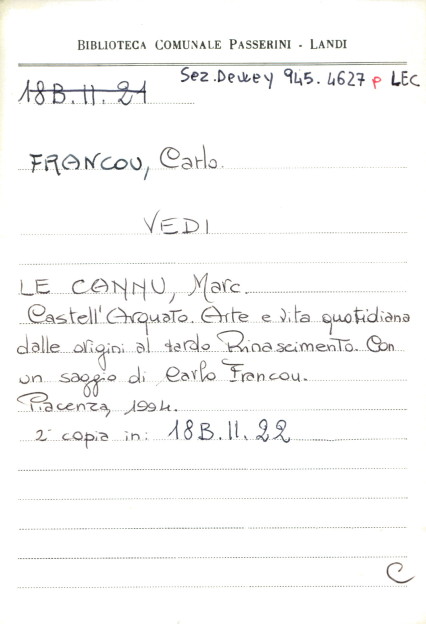 BIBLIOTECA COMUNALE PASSERINI - LANDI
Sez. Dewey 945.4627 p LEC
18B.II.21
FRANCOU, Carlo.
VEDI
LE CANNU, Marc.
Castell'Arquato. Arte e vita quotidiana
dalle origini al tardo Rinascimento. Con
un saggio di Carlo Francou.
Piacenza, 1994.
2ª copia in: 18B.II.22
C